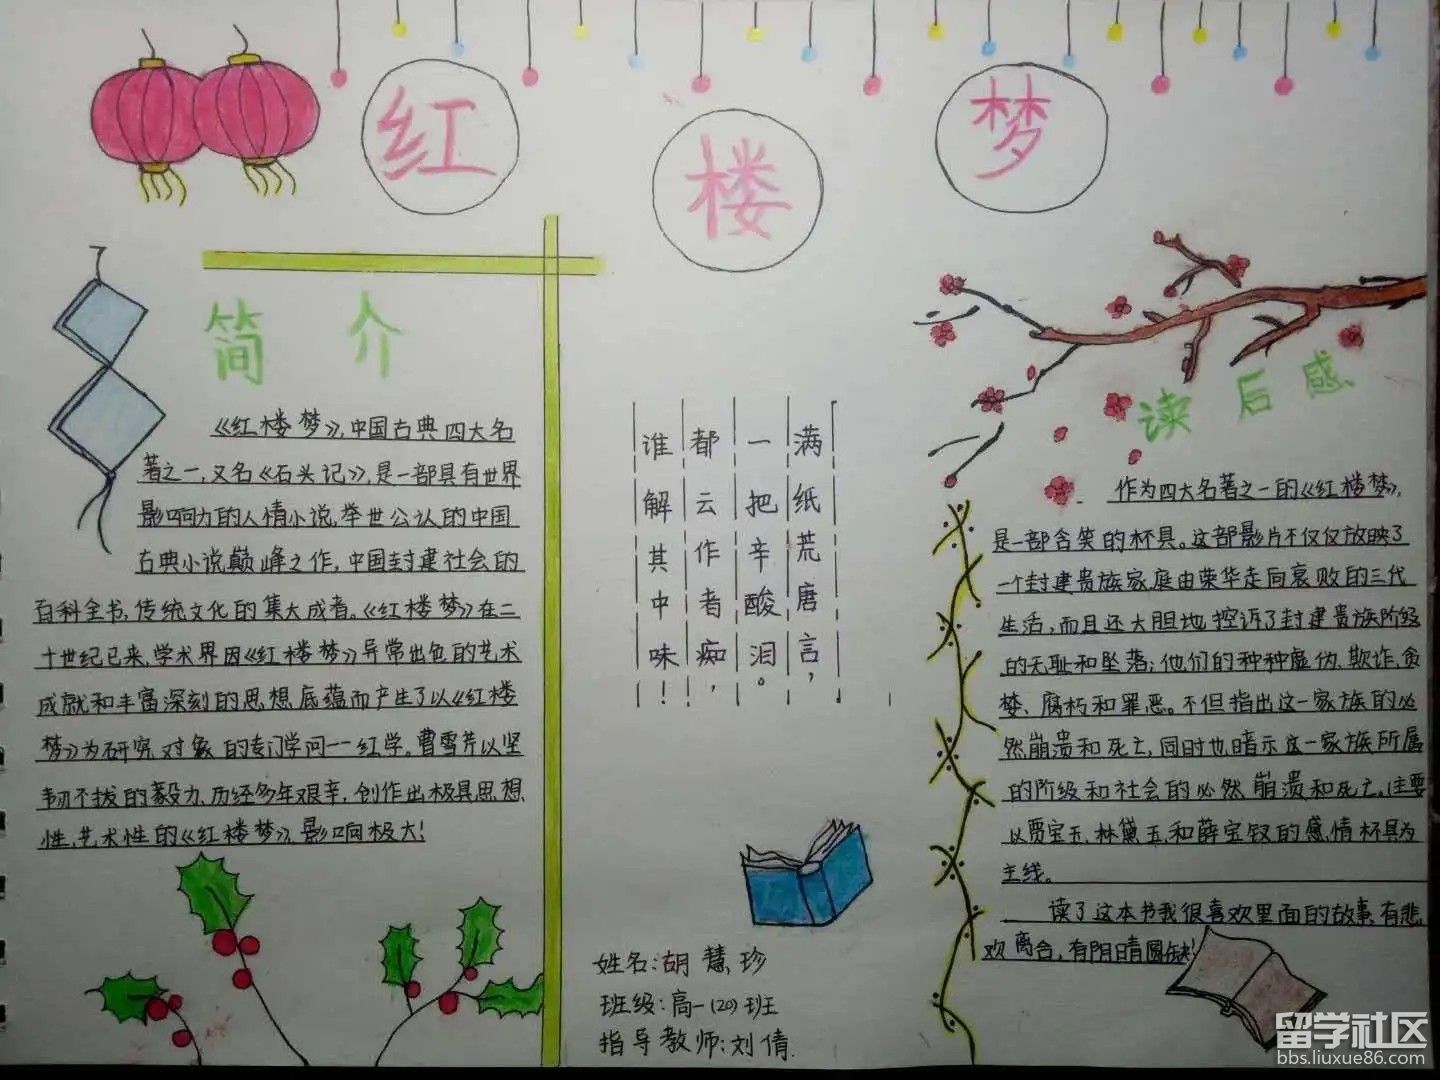 红楼梦
简介
《红楼梦》,中国古典四大名
著之一,又名《石头记》,是一部具有世界
影响力的人情小说,举世公认的中国
古典小说巅峰之作,中国封建社会的
百科全书,传统文化的集大成者。《红楼梦》在二
十世纪已来,学术界因《红楼梦》异常出色的艺术
成就和丰富深刻的思想底蕴而产生了以《红楼
梦》为研究对象的专门学问一一红学。曹雪芹以坚
韧不拔的毅力、历经多年艰辛,创作出极具思想
性,艺术性的《红楼梦》,影响极大!
满纸荒唐言,
一把辛酸泪。
都云作者痴,
谁解其中味!
姓名:胡慧珍
班级:高一(20)班
指导教师:刘倩.
读后感
作为四大名著之一的《红楼梦》,
是一部含笑的杯具。这部影片不仅仅放映了
一个封建贵族家庭由荣华走向衰败的三代
生活,而且还大胆地控诉了封建贵族阶级
的无耻和坠落;他们的种种虚伪、欺诈,贪
婪、腐朽和罪恶。不但指出这一家族的必
然崩溃和死亡,同时也暗示这一家族所属
的阶级和社会的必然崩溃和死亡,主要
以贾宝玉、林黛玉、和薛宝钗的感情杯具为
主线。
读了这本书我很喜欢里面的故事,有悲
欢离合,有阴晴圆缺!
留学社区
bbs.liuxue86.com